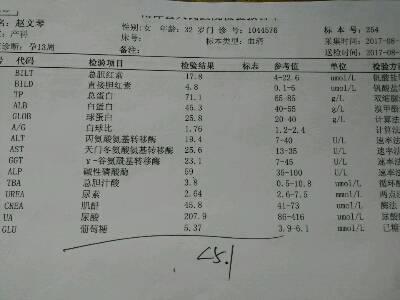 名: 赵文琴 性别: 女 年龄: 32 岁 门 诊 号: 1044576 标 本 号: 254
室: 产科 床号: 标本类型: 血清 采集时间: 2017-08-
诊断: 孕13周 备注: 送检时间: 2017-08-
号 代码 检验项目 检验结果 标志 参考值 单位 检验方
BILT 总胆红素 17.8 4-22.6 umol/L 钒酸盐
BILD 直接胆红素 4.8 0.1-6 umol/L 钒酸盐
TP 总蛋白 71.1 65-85 g/L 双缩
ALB 白蛋白 45.3 40-55 g/L 溴甲
GLOB 球蛋白 25.8 20-40 g/L 计算法
A/G 白球比 1.76 1.2-2.4 计算法
ALT 丙氨酸氨基转移酶 19.4 7-40 U/L 速率法
AST 天门冬氨酸氨基转移酶 25.6 13-35 U/L 速率法
GGT γ-谷氨酰基转移酶 23.1 7-45 U/L 速率法
ALP 碱性磷酸酶 59 35-100 U/L 速率法
TBA 总胆汁酸 3.8 0.5-10.8 umol/L 循环酶
UREA 尿素 2.64 2.6-7.5 mmol/L 两点法
CREA 肌酐 45.8 41-73 umol/L 酶法
UA 尿酸 207.9 86-416 umol/L 尿酸
GLU 葡萄糖 5.37 3.9-6.1 mmol/L 己糖
<5.1